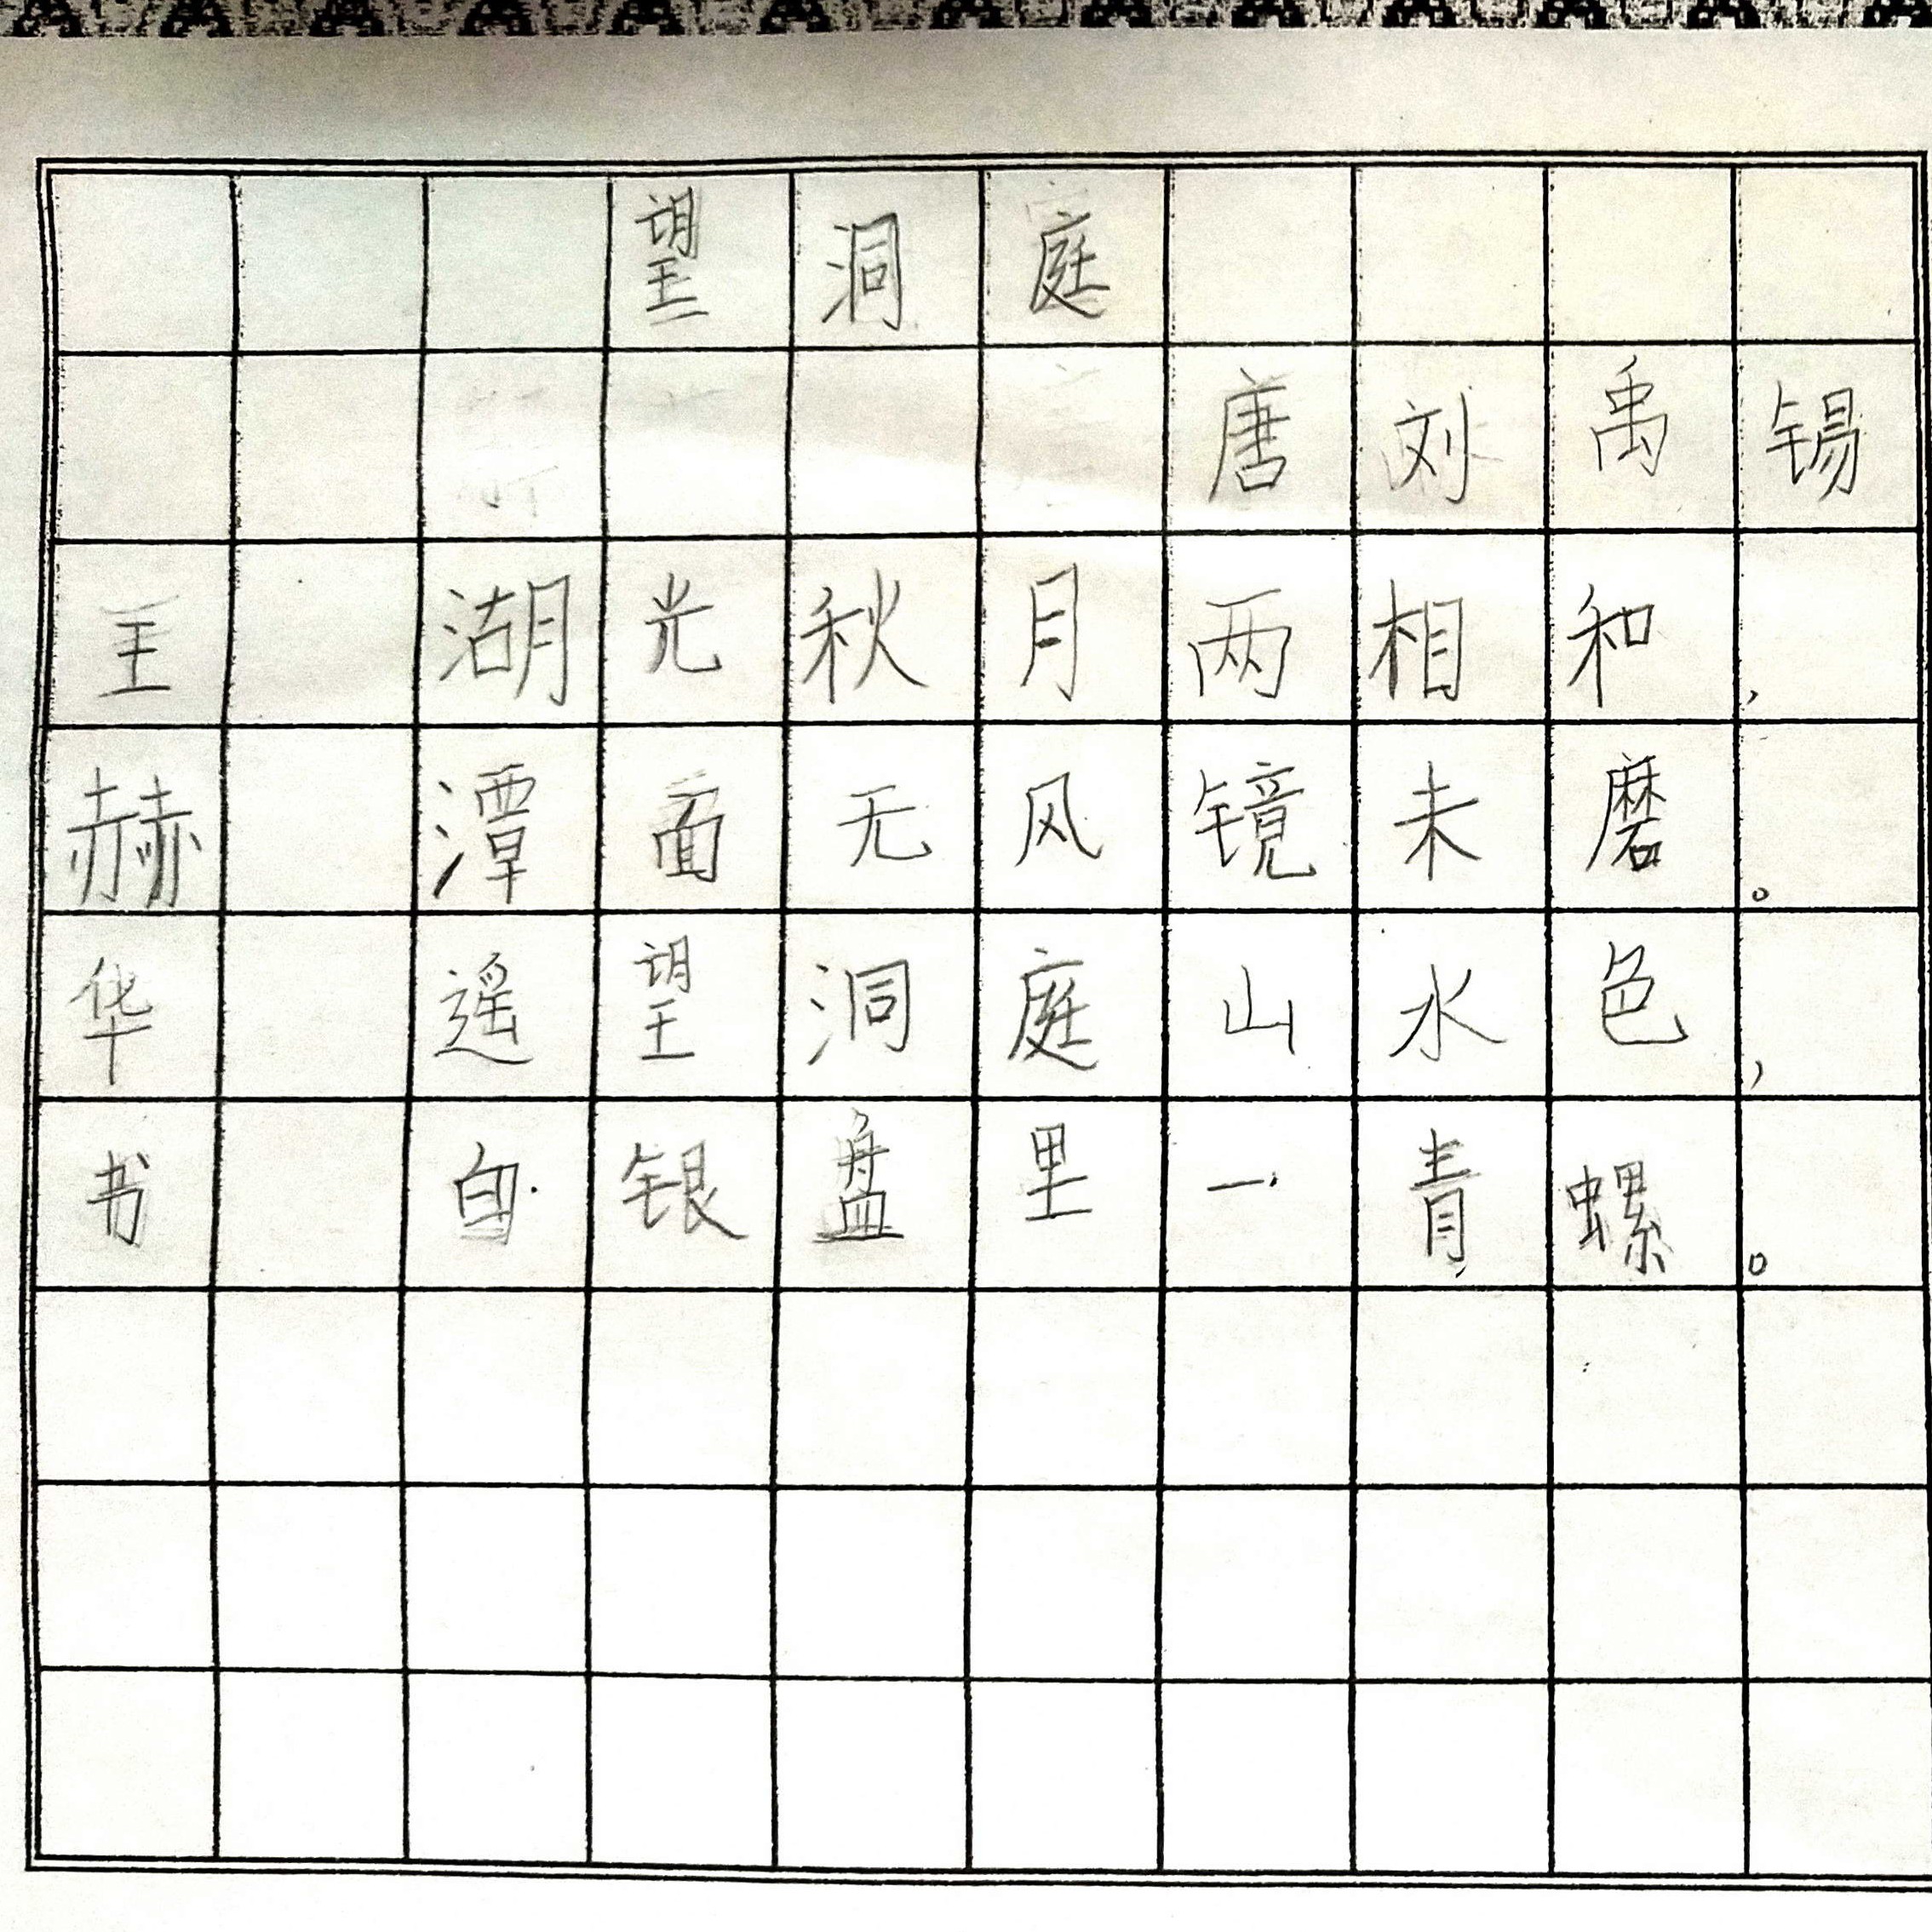 望洞庭
唐刘禹锡
湖光秋月两相和，
潭面无风镜未磨。
遥望洞庭山水色，
白银盘里一青螺。
王赫华书